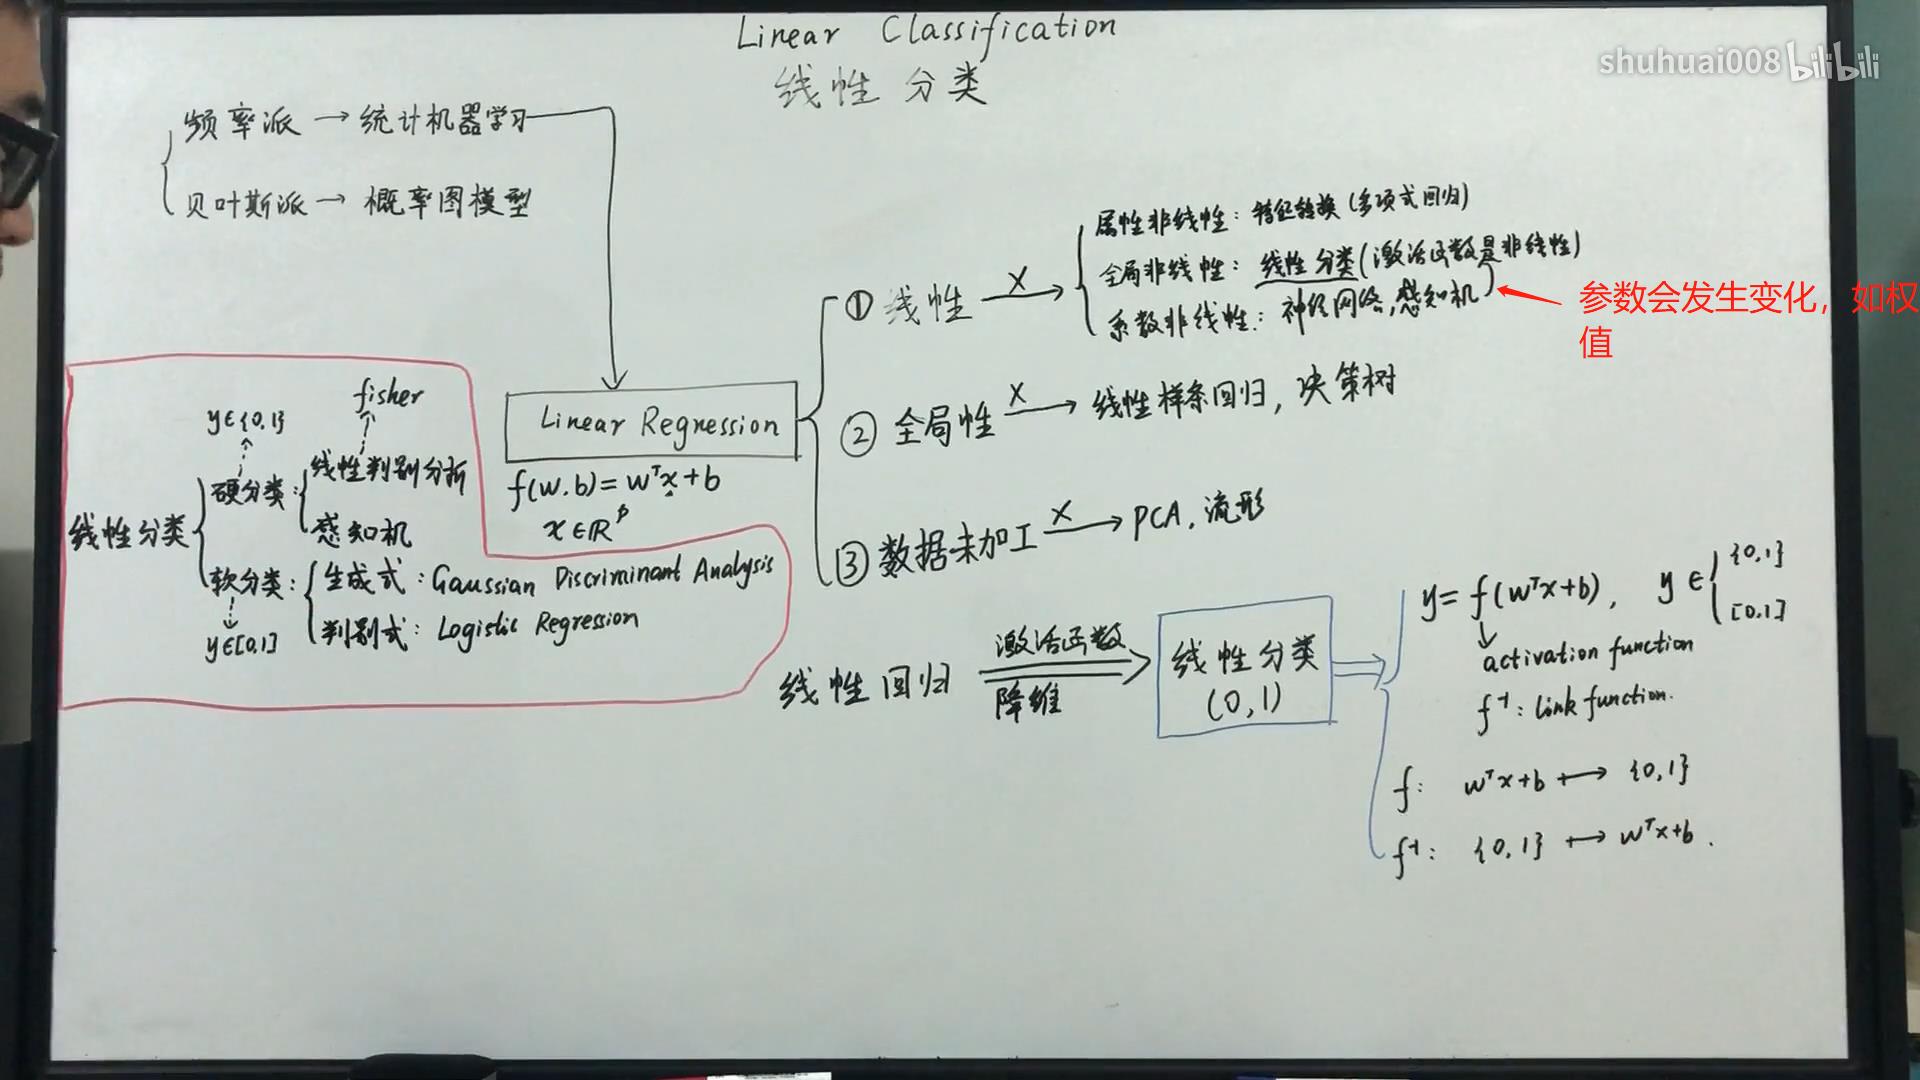 Linear Classification
线性分类
shuhuai008 bilibili
频率派 → 统计机器学习
贝叶斯派 → 概率图模型
Linear Regression
f(w.b)=wᵀx+b
x∈ℝᵖ
① 线性 X→
属性非线性：特征转换(多项式回归)
全局非线性：线性分类(激活函数是非线性)
系数非线性：神经网络,感知机
参数会发生变化，如权
值
② 全局性 X→ 线性样条回归，决策树
③ 数据未加工 X→ PCA, 流形
fisher
y∈{0,1}
线性分类
硬分类：
线性判别分析
感知机
软分类：
生成式：Gaussian Discriminant Analysis
判别式：Logistic Regression
y∈[0,1]
线性回归
激活函数
降维
线性分类
(0,1)
y=f(wᵀx+b), y∈
{0,1}
[0,1]
activation function
f⁻¹: link function.
f: wᵀx+b ↦ {0,1}
f⁻¹: {0,1} ↦ wᵀx+b.